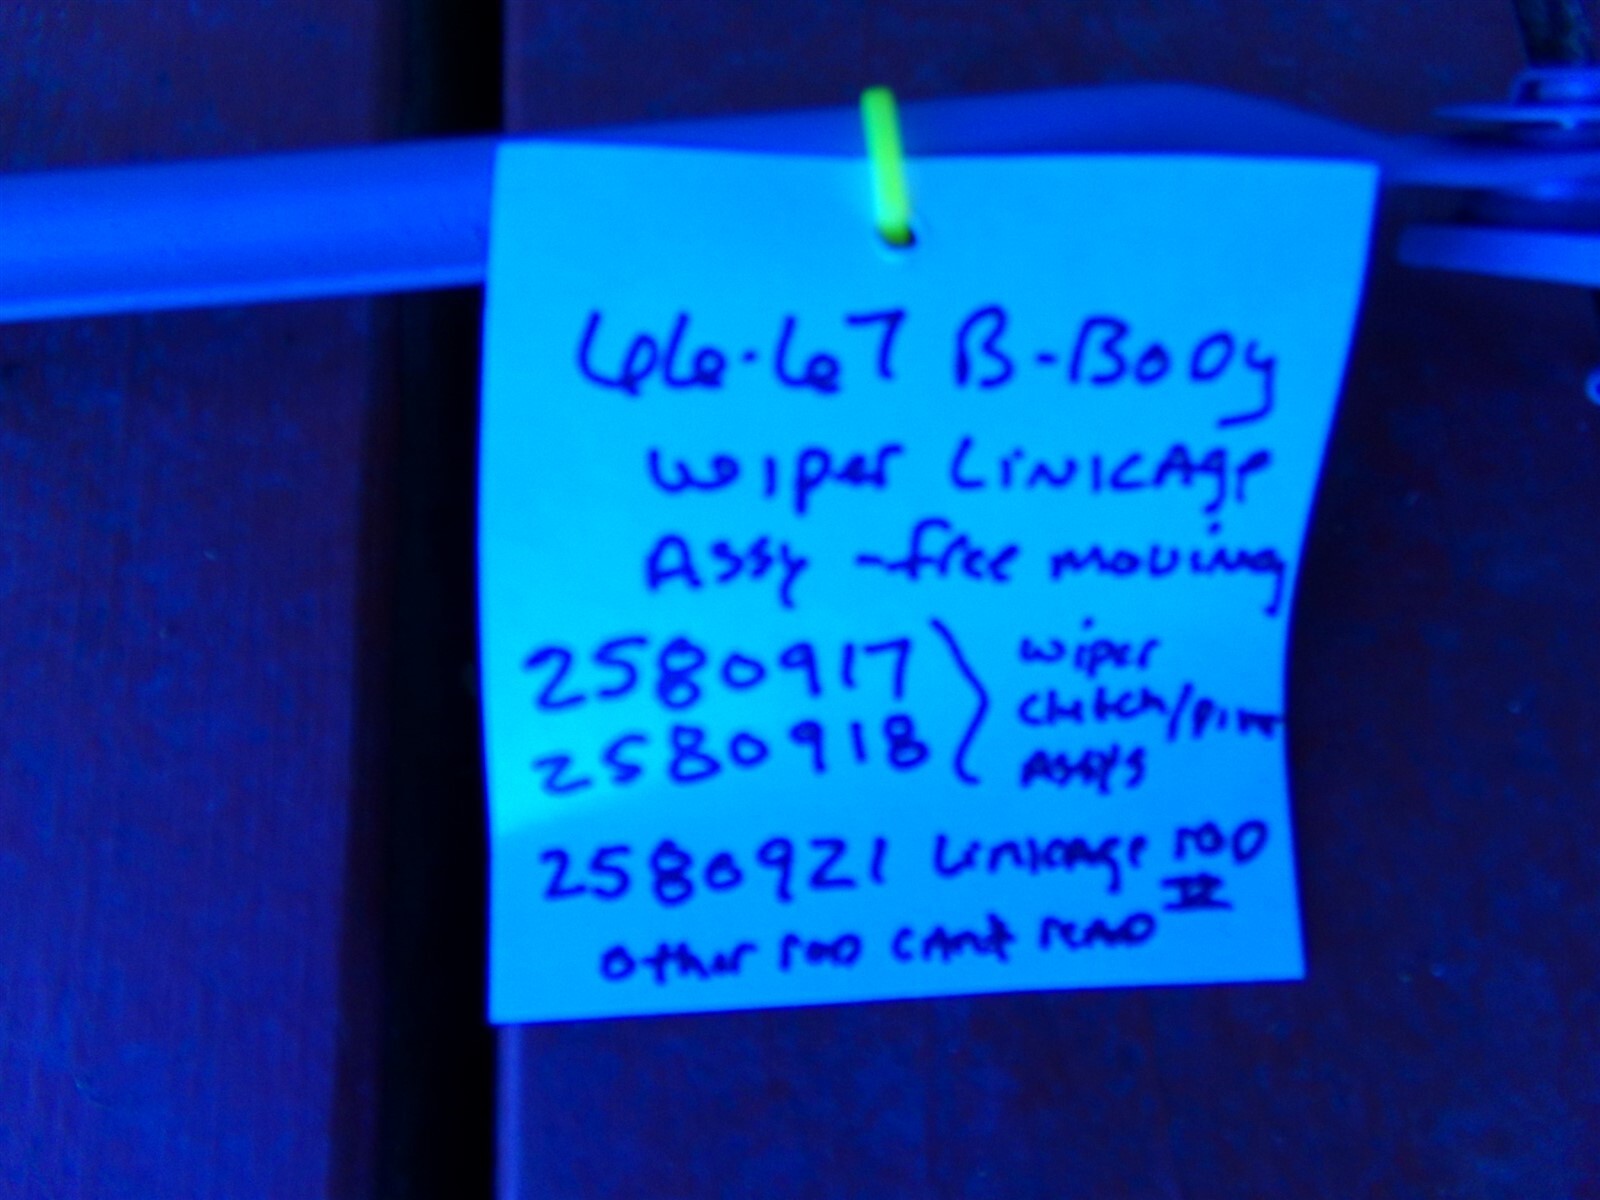 66-67 B-Body
wiper LiNKAge
Assy -free moving
2580917
2580918
wiper
Assy's
2580921 LiNKAge ROD
other rod CAN't reAD